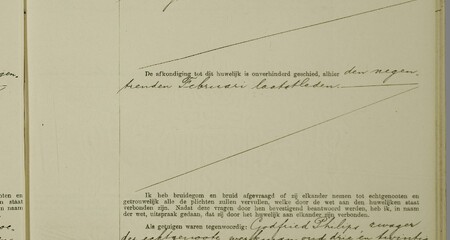 De afkondiging tot dit huwelijk is onverhinderd geschied, alhier den negen
tienden Februari laatstleden.
Ik heb bruidegom en bruid afgevraagd of zij elkander nemen tot echtgenooten en
getrouwelijk alle de plichten zullen vervullen, welke door de wet aan den huwelijken staat
verbonden zijn. Nadat deze vragen door hen bevestigend beantwoord werden, heb ik, in naam
der wet, uitspraak gedaan, dat zij door het huwelijk aan elkander zijn verbonden.
Als getuigen waren tegenwoordig: Godfried Philips, zwager
der echtgenoote, oud drie en
ooten en
n staat
in naam